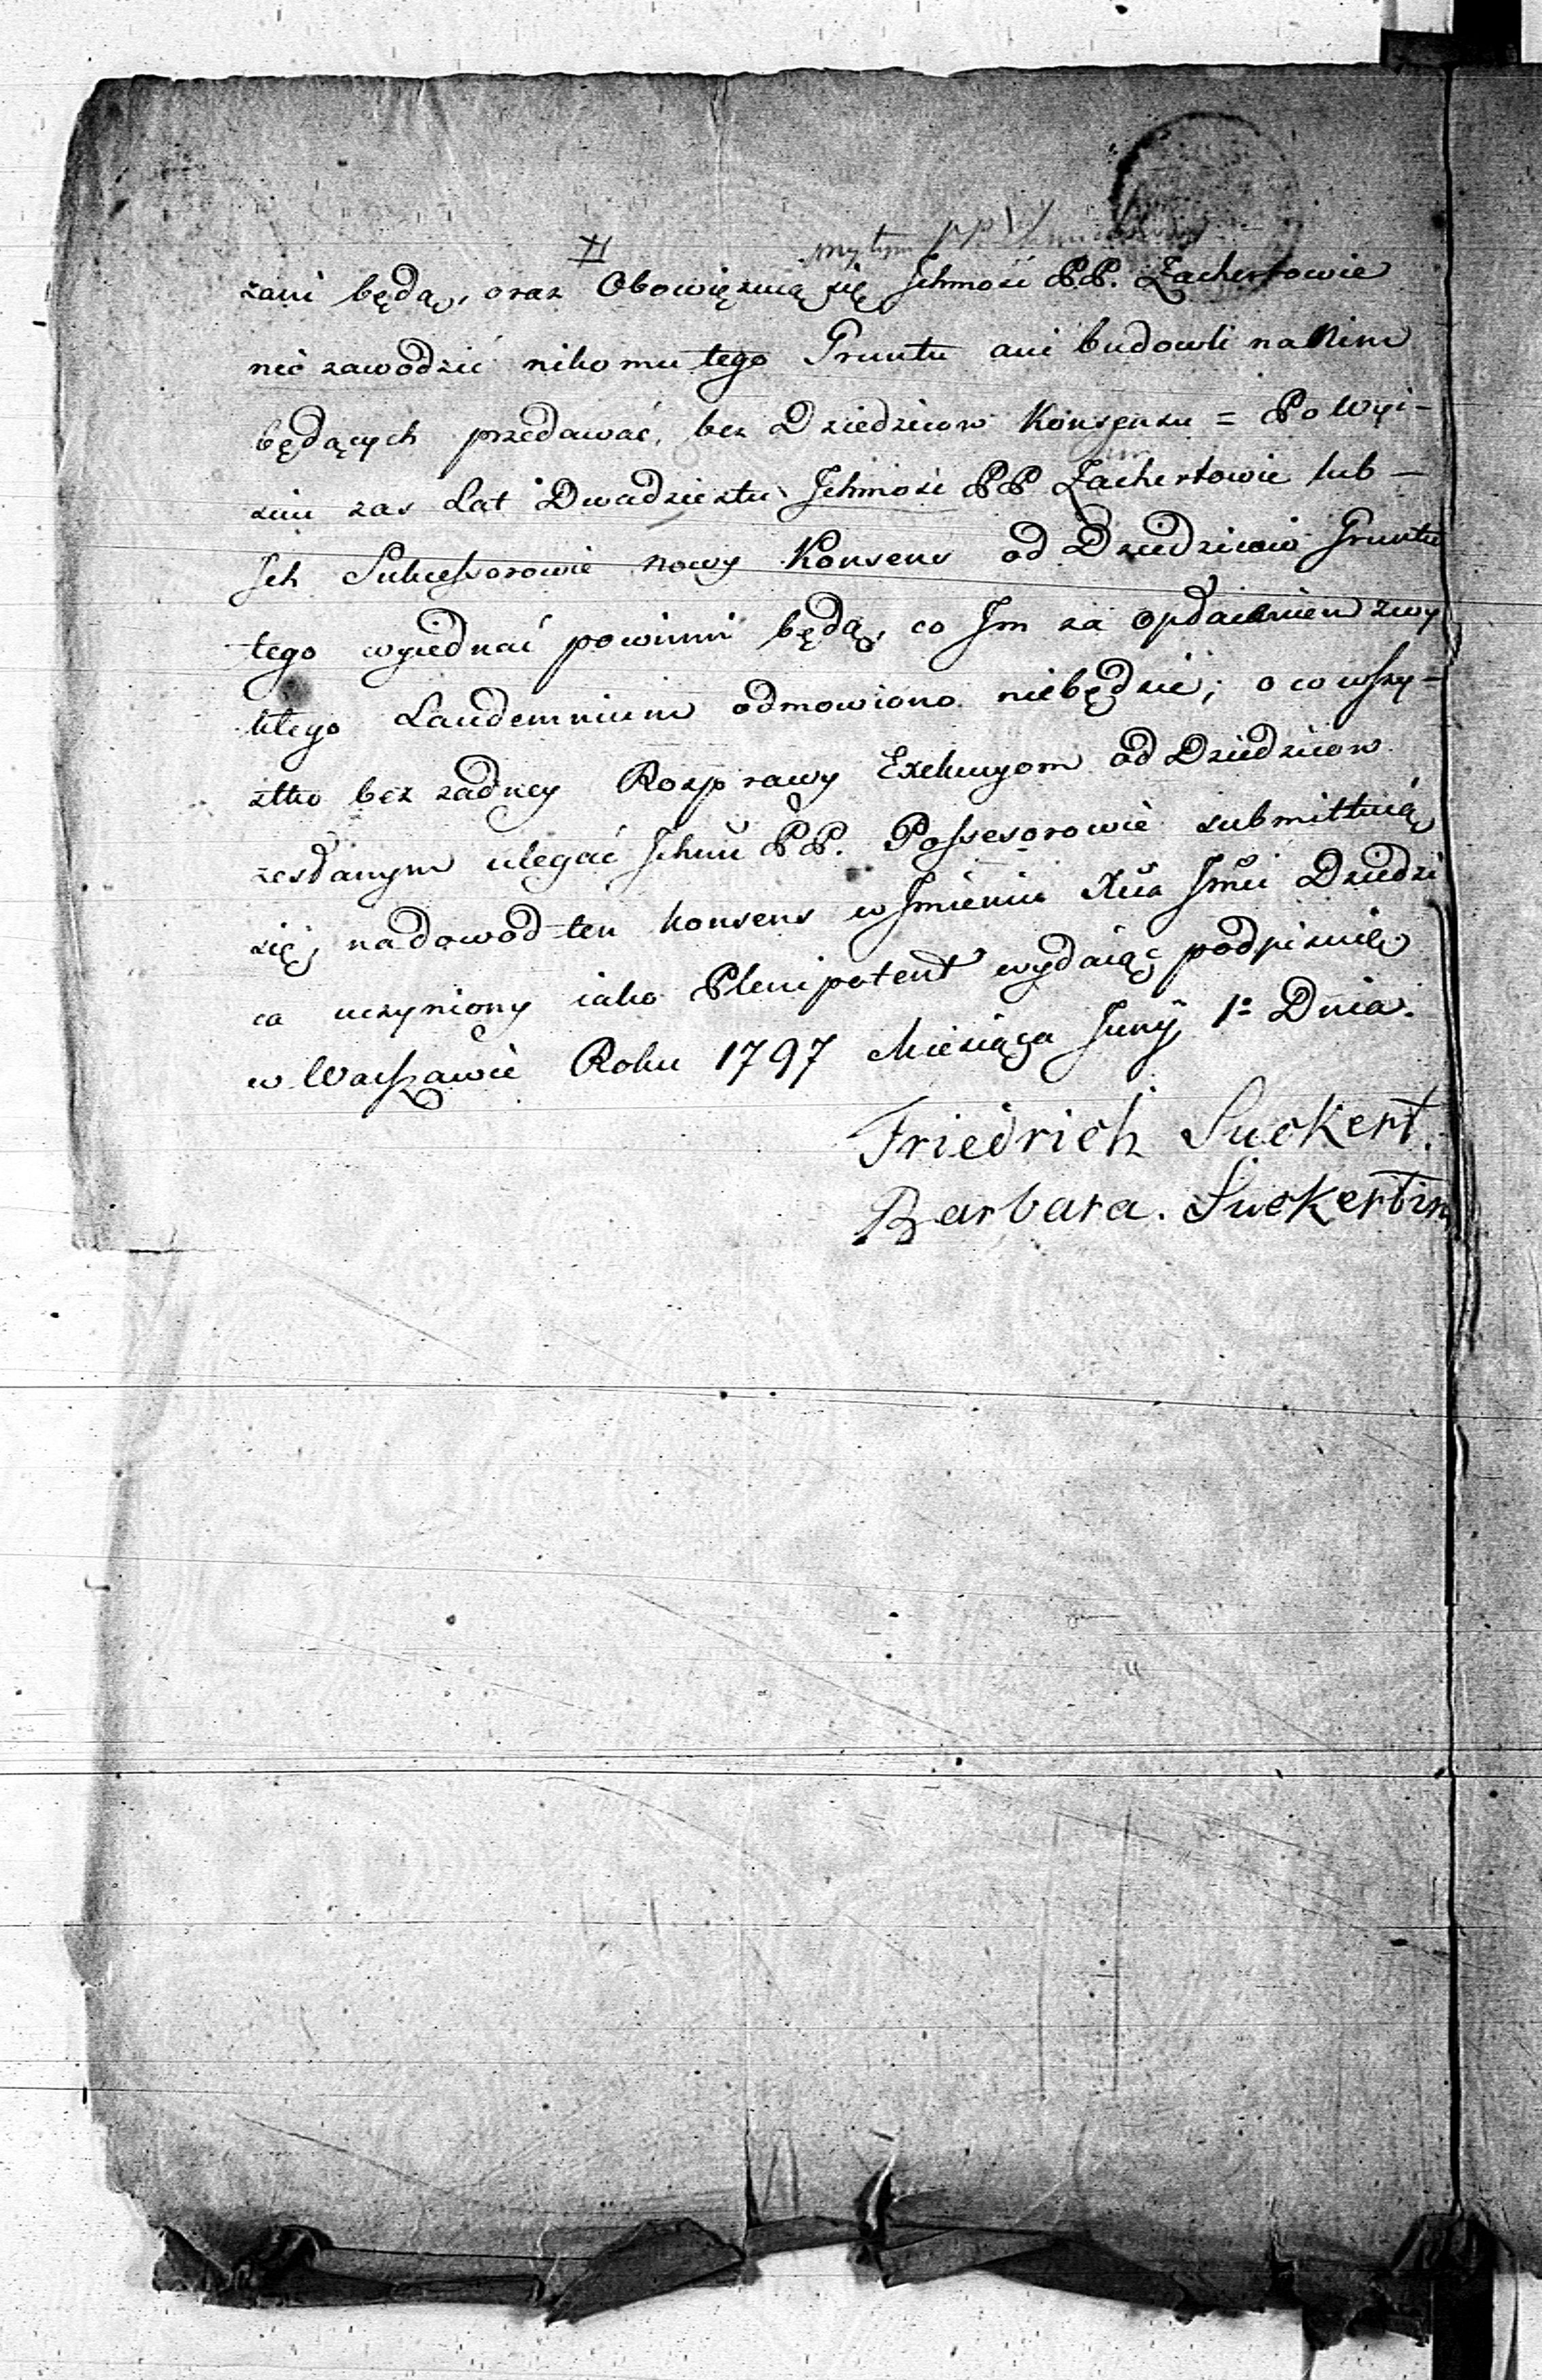 zani będą, oraz Obowięzuią się Jchmość PP. Zachertowie
nie zawodzić nikomu tego Gruntu ani budowli na Nim
będących przedawać, bez Dziedzicow Konsensu = Po Wyi-
ściu zas Lat Dwadziestu Jchmość PP Zachertowie lub -
Jch Sukcessorowie nowy Konsens od Dziedzicow Gruntu
tego wyiednać powinni będą, co Jm za opłaceniem zwy
kłego Laudemnium odmowiono niebędzie; o co wszy-
stko bez żadney Rosprawy Exekucyom od Dziedzicow
zesłanym ulegać Jchmć PP. Possessorowie submittuią
się, na dowod ten konsens w Jmieniu Jmci Dziedzi
ca uczyniony iako Plenipotent wydaiąc podpisuię
w Warszawie Roku 1797 Miesiąca Junÿ 1º Dnia.
Friedrich Suckert.
Barbara. Suckertin